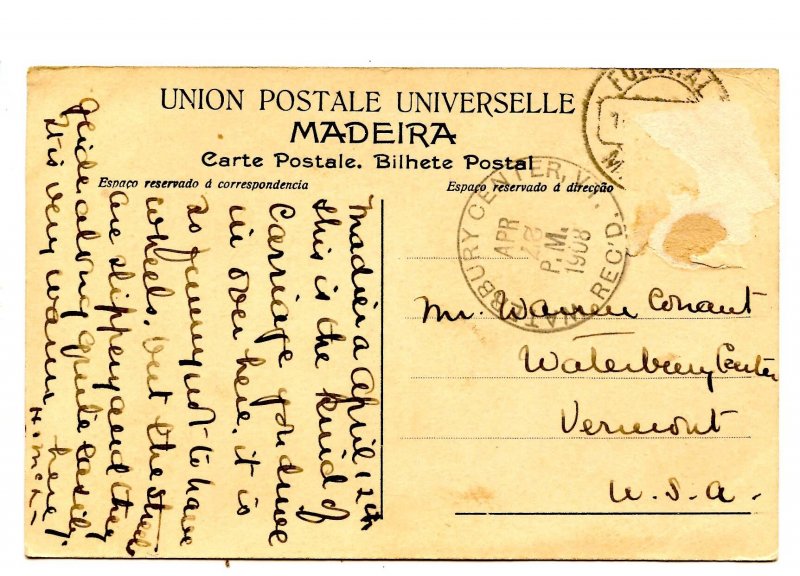 UNION POSTALE UNIVERSELLE
MADEIRA
Carte Postale. Bilhete Postal
Espaço reservado á correspondencia
Espaço reservado á direcção
FUNCHAL
WATERBURY CENTER, VT. REC'D.
APR
P.M.
1908
Madiera April 12th
this is the kind of
Carriage you drive
in over here, it is
so funny not to have
wheels. but the streets
are slippery and they
glide along quite easily.
It is very warm here
Mr. Warren Conant
Waterbury Center
Vermont
U.S.A.